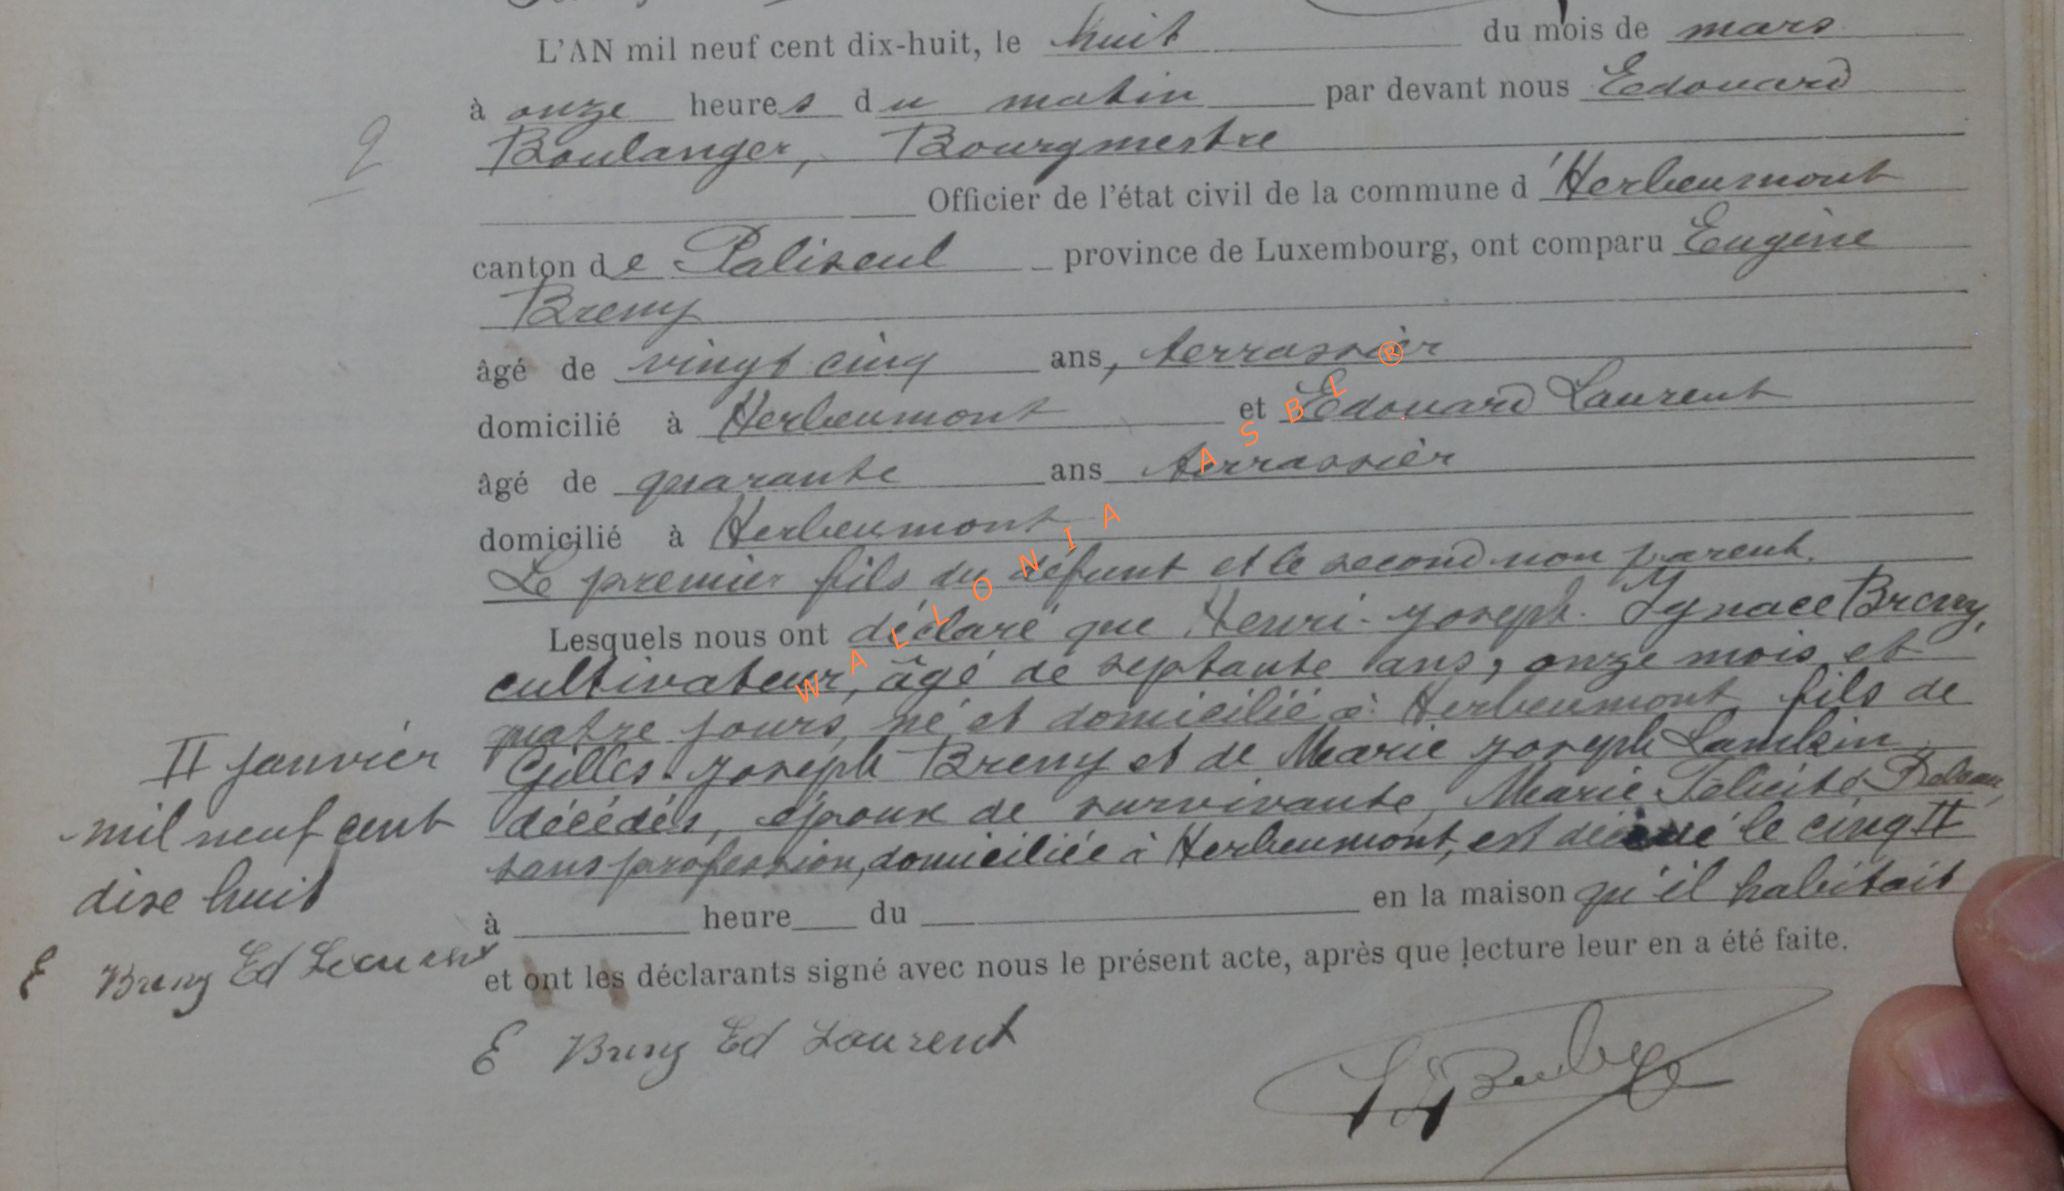 L'AN mil neuf cent dix-huit, le huit du mois de mars
à onze heures du matin par devant nous Edouard
2
Boulanger, Bourgmestre
Officier de l'état civil de la commune d'Herbeumont
canton de Paliseul province de Luxembourg, ont comparu Eugène
Breny
âgé de vingt cinq ans, terrassièr
domicilié à Herbeumont et Edouard Laurent
âgé de quarante ans terrassièr
domicilié à Herbeumont
Le premier fils du défunt et le second non parent.
Lesquels nous ont déclaré que Henri-Joseph-Ignace Breny,
cultivateur, âgé de septante ans, onze mois et
quatre jours, né et domicilié à Herbeumont fils de
Gilles-Joseph Breny et de Marie Joseph Lambin
décédés, époux de survivante, Marie Félicité
sans profession, domiciliée à Herbeumont, est décédé le cinq II
à heure du en la maison qu'il habitait
et ont les déclarants signé avec nous le présent acte, après que lecture leur en a été faite.
II janvier
mil neuf cent
dixe huit
E Breny Ed Laurent
E Breny Ed Laurent
WALLONIA ASBL ®